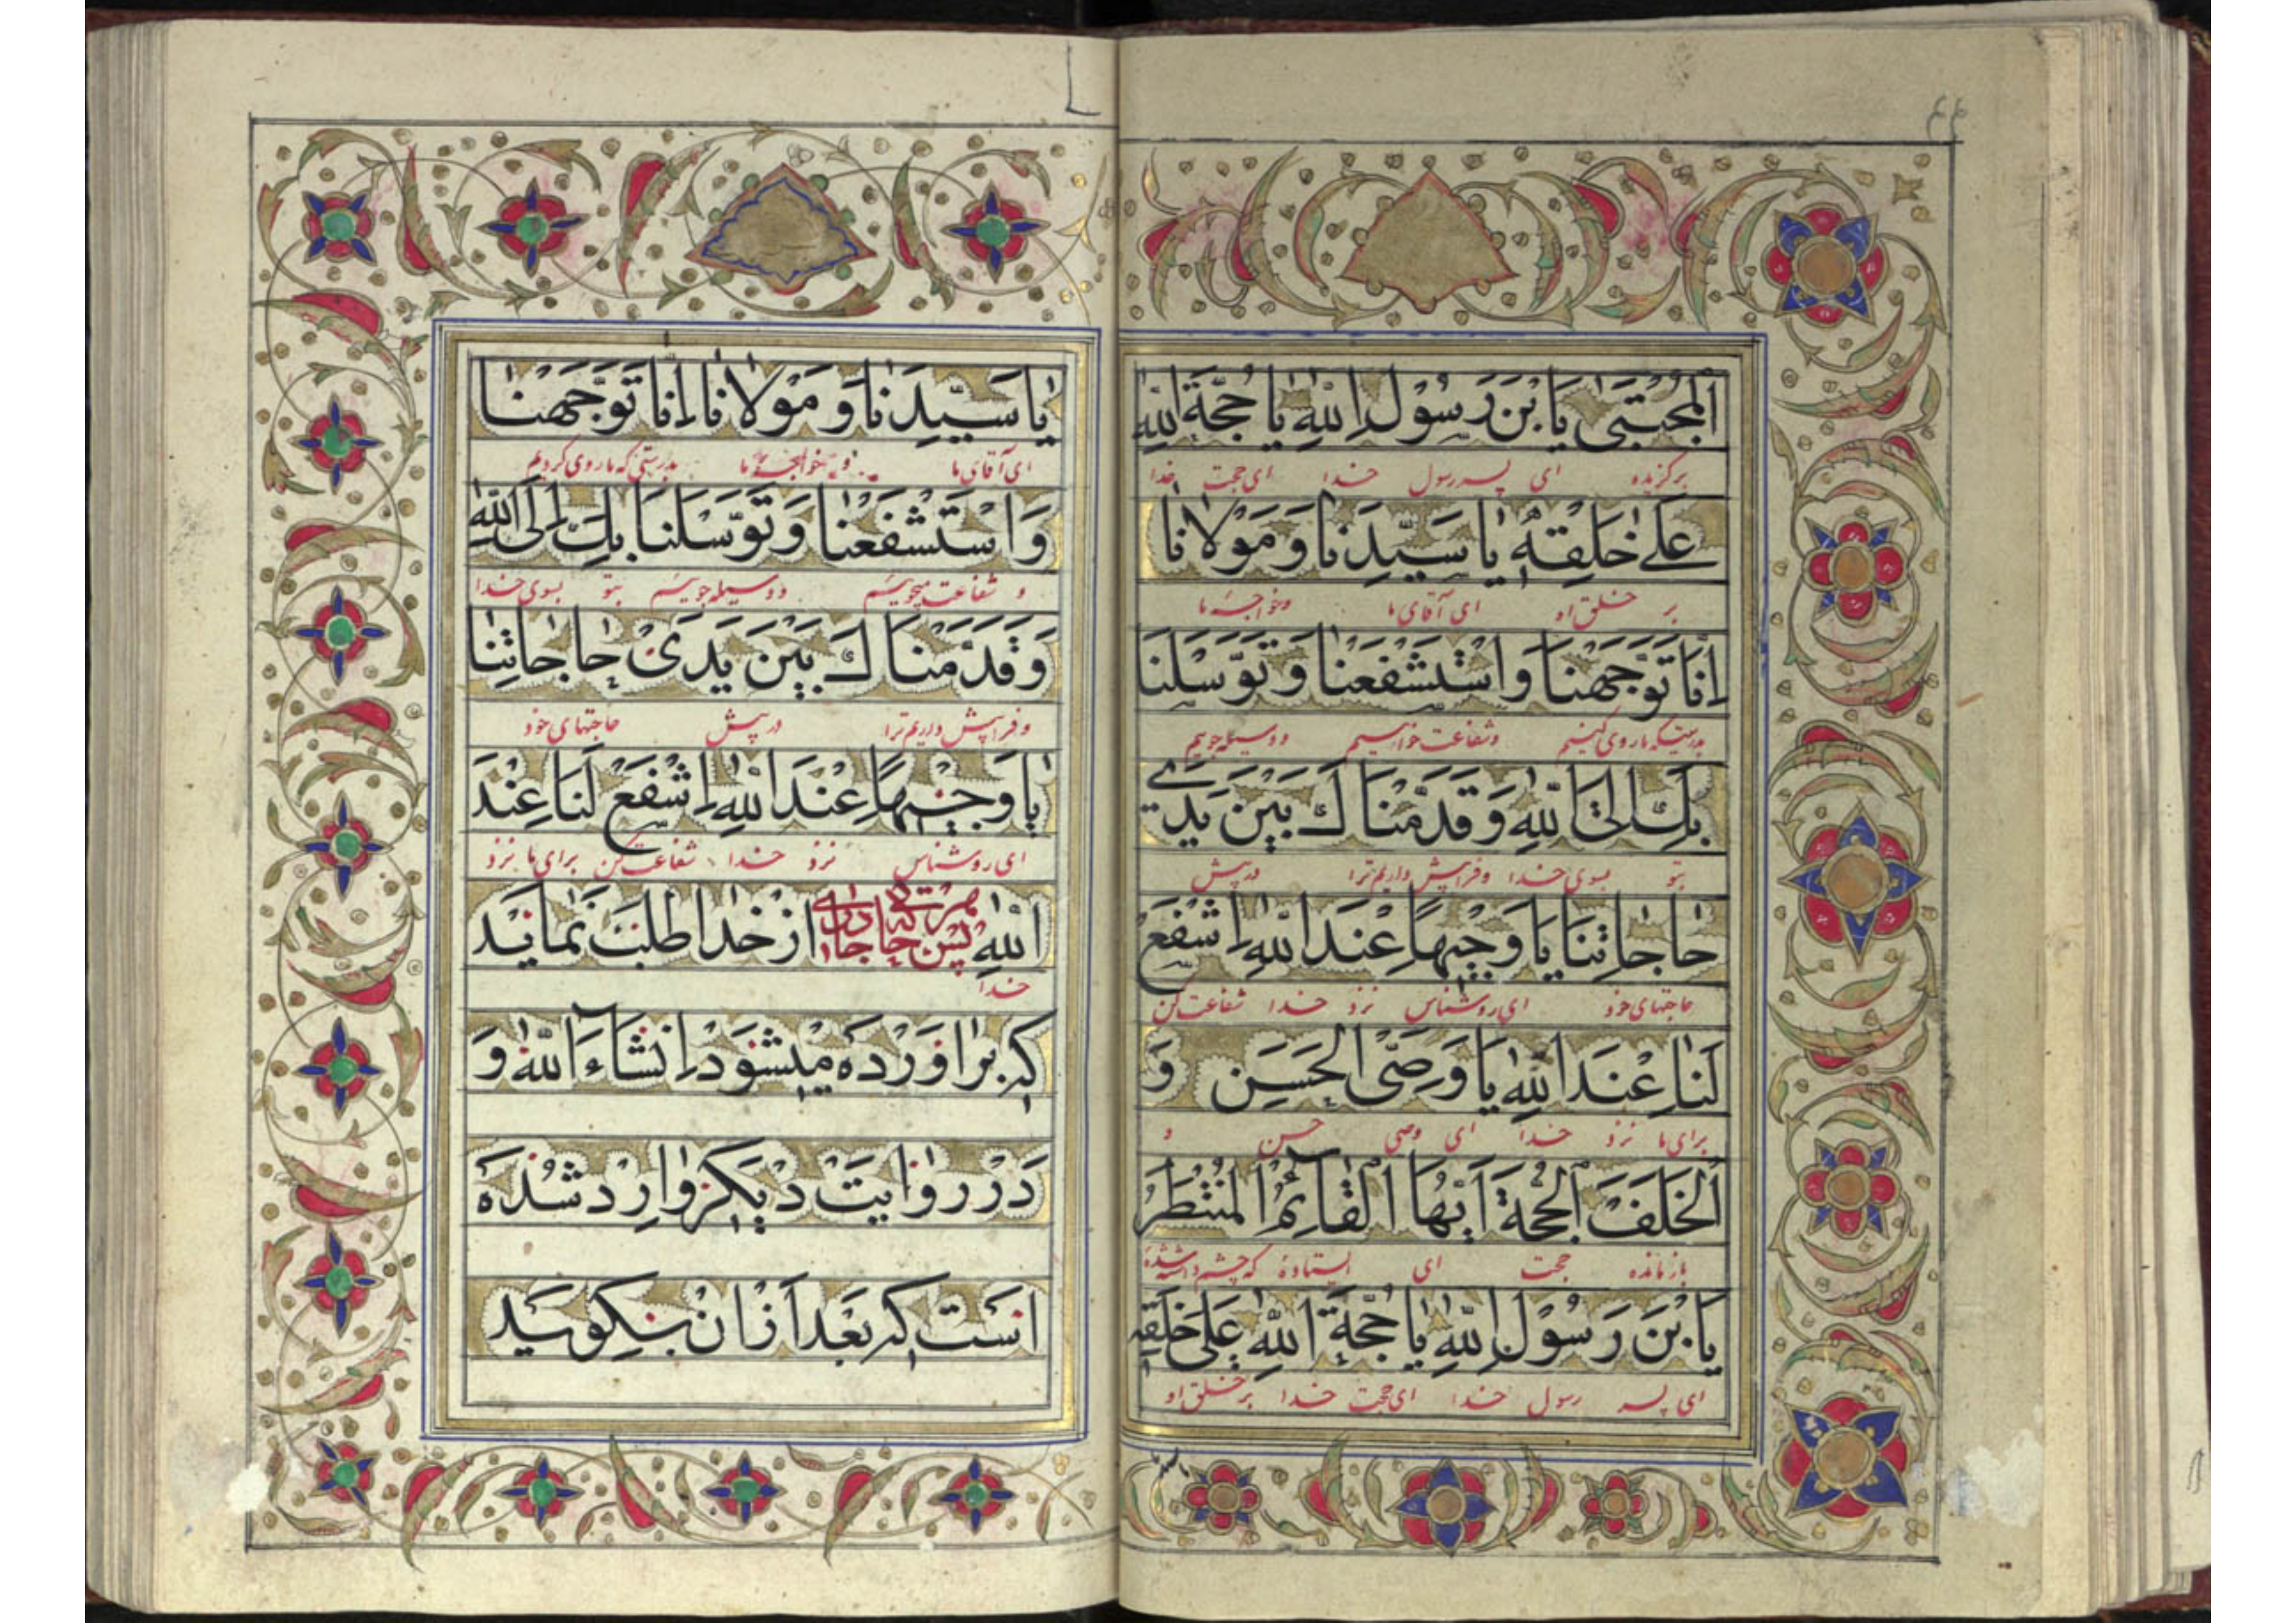 ۴۴
اَلْمُجْتَبىٰ يَا بْنَ رَسُوْلِ اللّٰهِ يَا حُجَّةَ اللّٰهِ
برگزیده ای پسر رسول خدا ای حجت خدا
عَلىٰ خَلْقِهٖ يَا سَيِّدَنَا وَ مَوْلَانَا
بر خلق او ای آقای ما وخواجهٔ ما
اِنَّا تَوَجَّهْنَا وَاسْتَشْفَعْنَا وَ تَوَسَّلْنَا
بدرستیکه ما روی کنیم وشفاعت خواهیم و وسیله جوییم
بِكَ اِلَى اللّٰهِ وَ قَدَّمْنَاكَ بَيْنَ يَدَىْ
بتو بسوی خدا وفرا پیش داریم ترا در پیش
حَاجَاتِنَا يَا وَجِيْهًا عِنْدَ اللّٰهِ اِشْفَعْ
حاجتهای خود ای روشناس نزد خدا شفاعت کن
لَنَا عِنْدَ اللّٰهِ يَا وَصِىَّ الْحَسَنِ وَ
برای ما نزد خدا ای وصی حسن و
الْخَلَفَ الْحُجَّةَ اَيُّهَا الْقَائِمُ الْمُنْتَظَرُ
بازمانده حجت ای ایستاده که چشم داشته شدهٔ
يَا بْنَ رَسُوْلِ اللّٰهِ يَا حُجَّةَ اللّٰهِ عَلىٰ خَلْقِهٖ
ای پسر رسول خدا ای حجت خدا بر خلق او
يَا سَيِّدَنَا وَ مَوْلَانَا اِنَّا تَوَجَّهْنَا
ای آقای ما و خواجهٔ ما بدرستی که ما روی کردیم
وَاسْتَشْفَعْنَا وَ تَوَسَّلْنَا بِكَ اِلَى اللّٰهِ
و شفاعت میجوییم و وسیله جوییم بتو بسوی خدا
وَ قَدَّمْنَاكَ بَيْنَ يَدَىْ حَاجَاتِنَا
وفرا پیش داریم ترا در پیش حاجتهای خود
يَا وَجِيْهًا عِنْدَ اللّٰهِ اِشْفَعْ لَنَا عِنْدَ
ای روشناس نزد خدا شفاعت کن برای ما نزد
اللّٰهِ پس هر حاجتی که داری از خدا طلب نمائید
خدا
که بر آورده میشود انشاء الله و
در روایت دیگر وارد شده
است که بعد از آن بگوئید